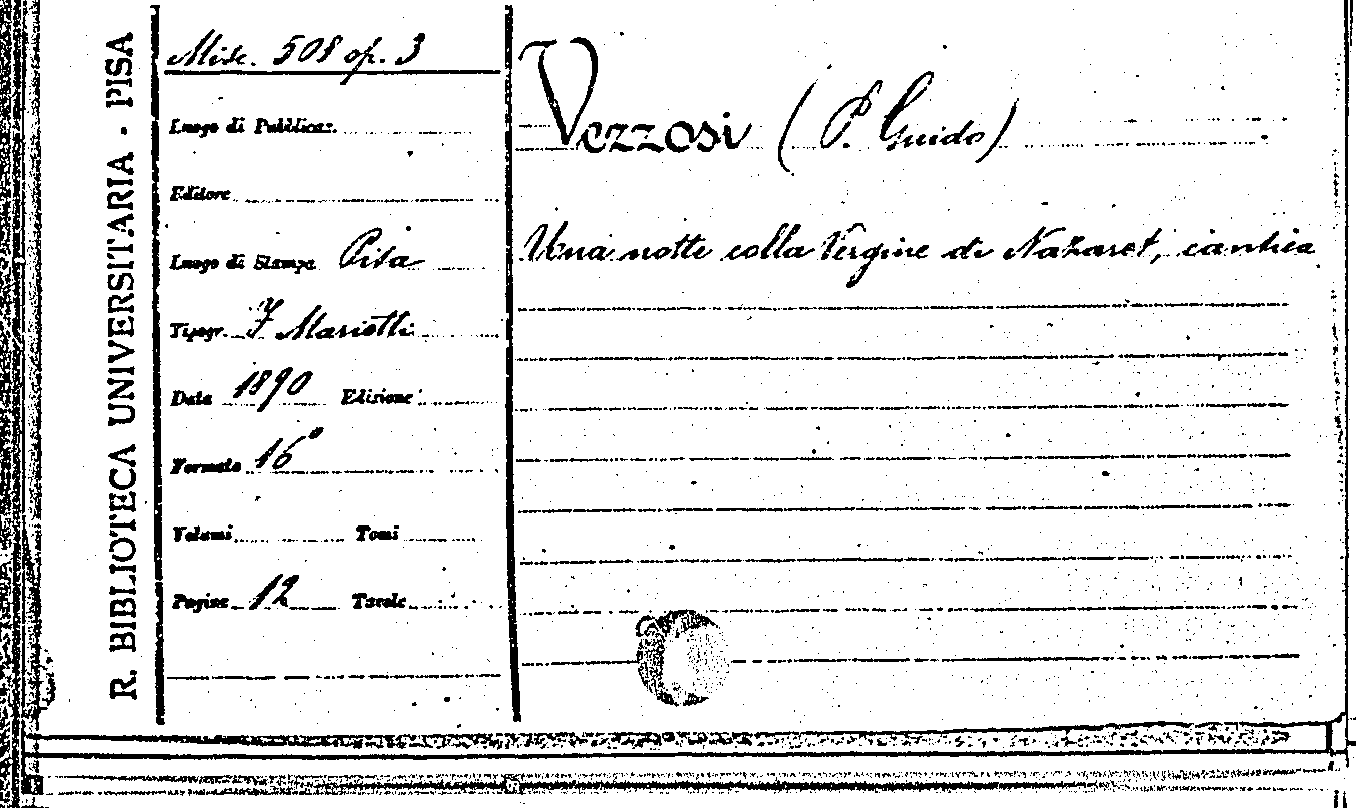 R. BIBLIOTECA UNIVERSITARIA - PISA
Misc. 508 op. 3
Luogo di Pubblicaz.
Editore
Luogo di Stampa Pisa
Tipogr. F Mariotti
Data 1890 Edizione
Formato 16°
Volumi Tomi
Pagine 12 Tavole
Vezzosi (P. Guido)
Una notte colla Vergine di Nazaret, cantica